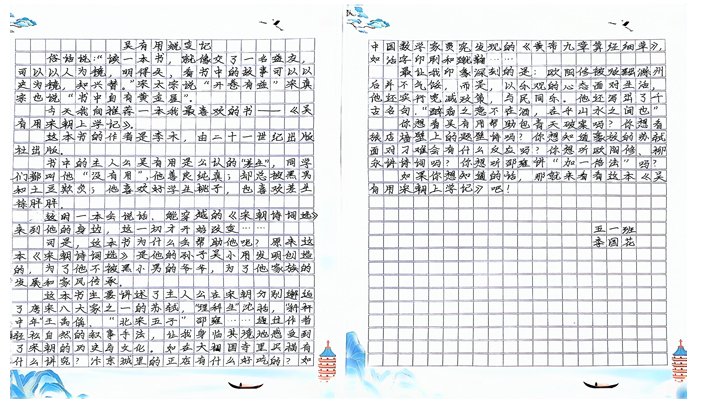 吴有用蜕变记
俗话说:“读一本书,就像交了一名益友,
可以以人为镜,明得失,看书中的故事可以以
史为镜,知兴替。”宋太宗说“开卷有益”宋真
宗也说“书中自有黄金屋”。
今天我向推荐一本我最喜欢的书——《吴
有用宋朝上学记》。
这本书的作者是李永,由二十一世纪出版
社出版。
书中的主人公吴有用是公认的“差生”,同学
们都叫他“没有用”,他善良纯真;却总被黑男
和土豆欺负;他喜欢好学生桃子,也喜欢差生
胖胖。
这用一本会说话,能穿越的《宋朝诗词选》
来到他的身边,这一切才开始改变……
可是,这本书为什么会帮助他呢?原来这
本《宋朝诗词选》是他的孙子吴小用发明创造
的,为了他不被黑小男的爷爷,为了他家族的
发展和家风传承。
这本书主要讲述了主人公在宋朝分别邂逅
了唐宋八大家之一的苏轼,“理科生”沈括,
中年”王禹偁,“北宋五子”邵雍……通过作者
轻松自然的叙事手法,让我身临其境地感受到
了宋朝的历史与文化。如在大相国寺里买福有
什么讲究?汴京城里的正店有什么好吃的?如
中国数学家贾宪发现的《黄帝九章算经细草》,
如活字印刷和蹴鞠……
最让我印象深刻的是:欧阳修被贬独滁州
后并不气馁,而是,以乐观的心态面对生活,
他还实行宽减政策,与民同乐。他还写出了千
古名句,“醉翁之意不在酒,在乎山水之间也”
你想看吴有用帮助包青天破案吗?你想看
狄店墙壁上的题壁诗吗?你想知道寡妓的苏轼
面对刁难会有什么反应吗?你想听欧阳修、柳
永讲诗词吗?你想听邵雍讲“加一倍法”吗?
如果你想知道的话,那就来看看这本《吴
有用宋朝上学记》吧!
五一班
李国花